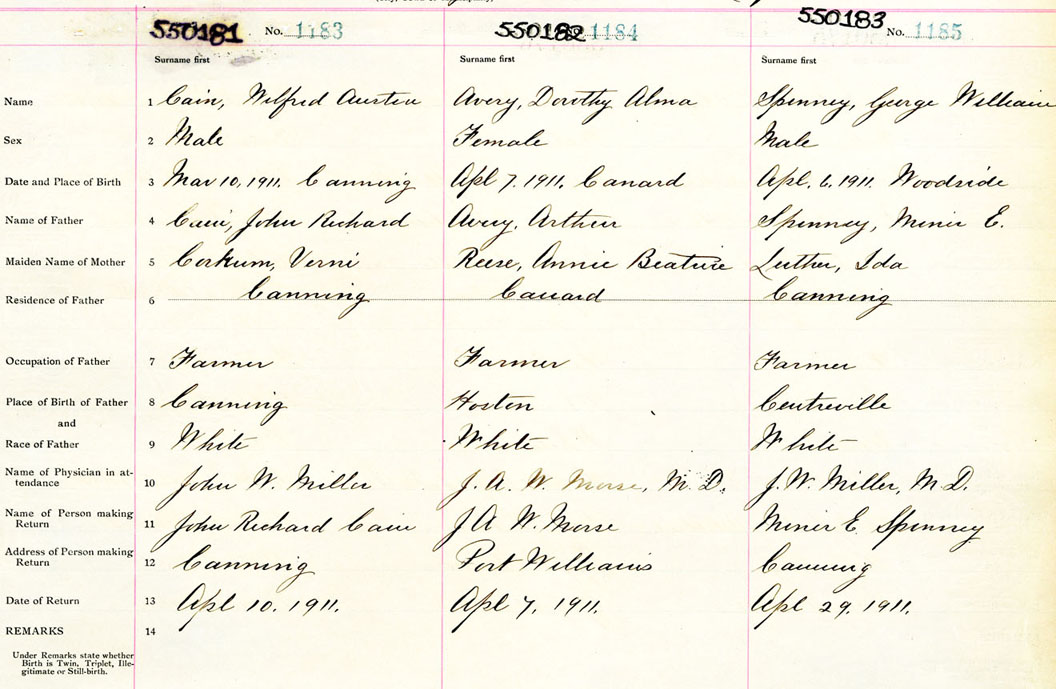 550181 No. 1183 550182 1184 550183 No. 1185
Surname first Surname first Surname first
Name 1 Cain, Wilfred Austin Avery, Dorothy Alma Spinney, George William
Sex 2 Male Female Male
Date and Place of Birth 3 Mar 10, 1911. Canning Apl 7. 1911. Canard Apl. 6. 1911. Woodside
Name of Father 4 Cain, John Richard Avery, Arthur Spinney, Miner E.
Maiden Name of Mother 5 Corkum, Verni Reese, Annie Beatrice Luther, Ida
Residence of Father 6 Canning Canard Canning
Occupation of Father 7 Farmer Farmer Farmer
Place of Birth of Father 8 Canning Centreville
and
Race of Father 9 White White White
Name of Physician in at-
tendance 10 John W. Miller J. A. W. Morse, M. D. J. W. Miller, M. D.
Name of Person making
Return 11 John Richard Cain J A W. Morse Miner E Spinney
Address of Person making
Return 12 Canning Port Williams Canning
Date of Return 13 Apl 10. 1911. Apl 7, 1911. Apl 29. 1911.
REMARKS 14
Under Remarks state whether
Birth is Twin, Triplet, Ille-
gitimate or Still-birth.